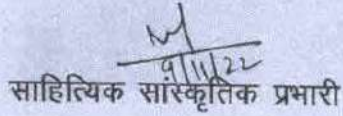 9/11/22
साहित्यिक सांस्कृतिक प्रभारी